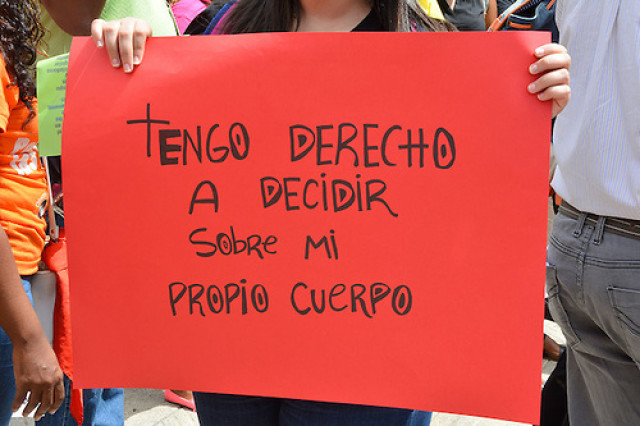 TENGO DERECHO
A DECIDIR
SOBRE MI
PROPIO CUERPO